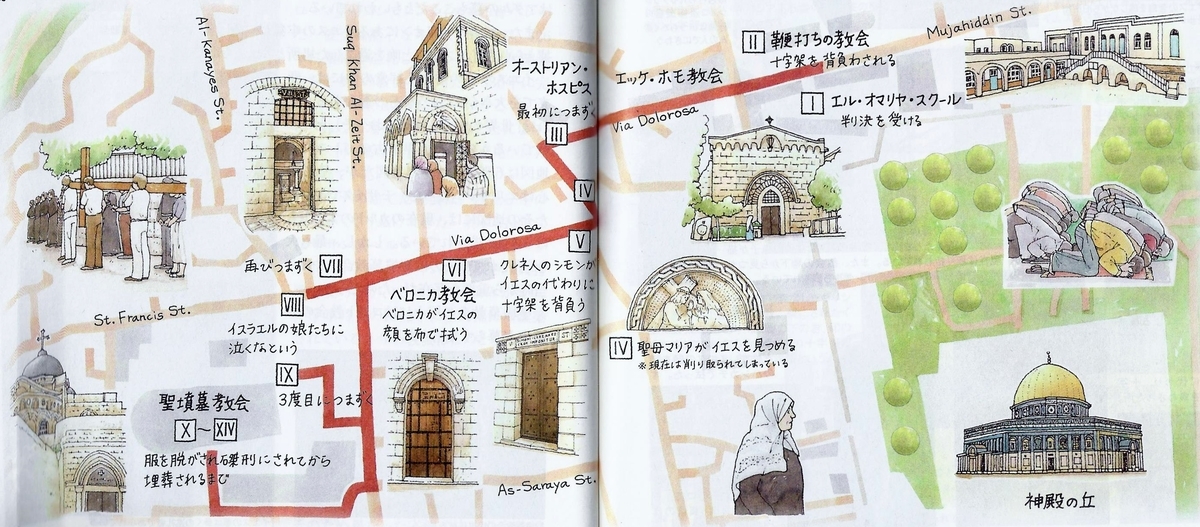 Al-Kanayes St.
Suq Khan Al-Zeit St.
オーストリアン・
ホスピス
最初につまずく
III
IV
V
クレネ人のシモンが
イエスの代わりに
十字架を背負う
Via Dolorosa
VI
ベロニカ教会
ベロニカがイエスの
顔を布で拭う
再びつまずく VII
VIII
イスラエルの娘たちに
泣くなという
St. Francis St.
IX
3度目につまずく
聖墳墓教会
X～XIV
服を脱がされ磔刑にされてから
埋葬されるまで
As-Saraya St.
エッケ・ホモ教会
Via Dolorosa
II 鞭打ちの教会
十字架を背負わされる
Mujahiddin St.
I エル・オマリヤ・スクール
判決を受ける
IV 聖母マリアがイエスを見つめる
※現在は削り取られてしまっている
神殿の丘